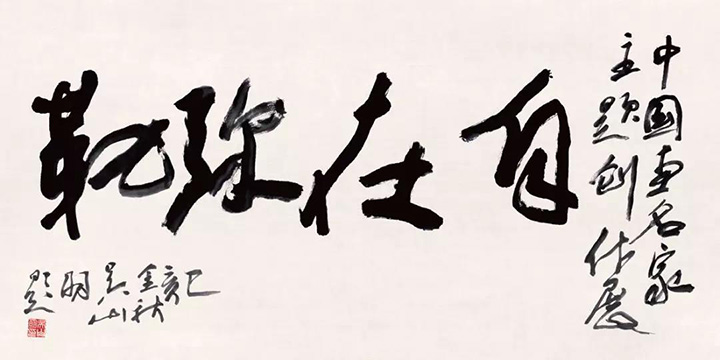 中国画名家
主题创作展
自在弥勒
己亥
金秋
吴山
明
题